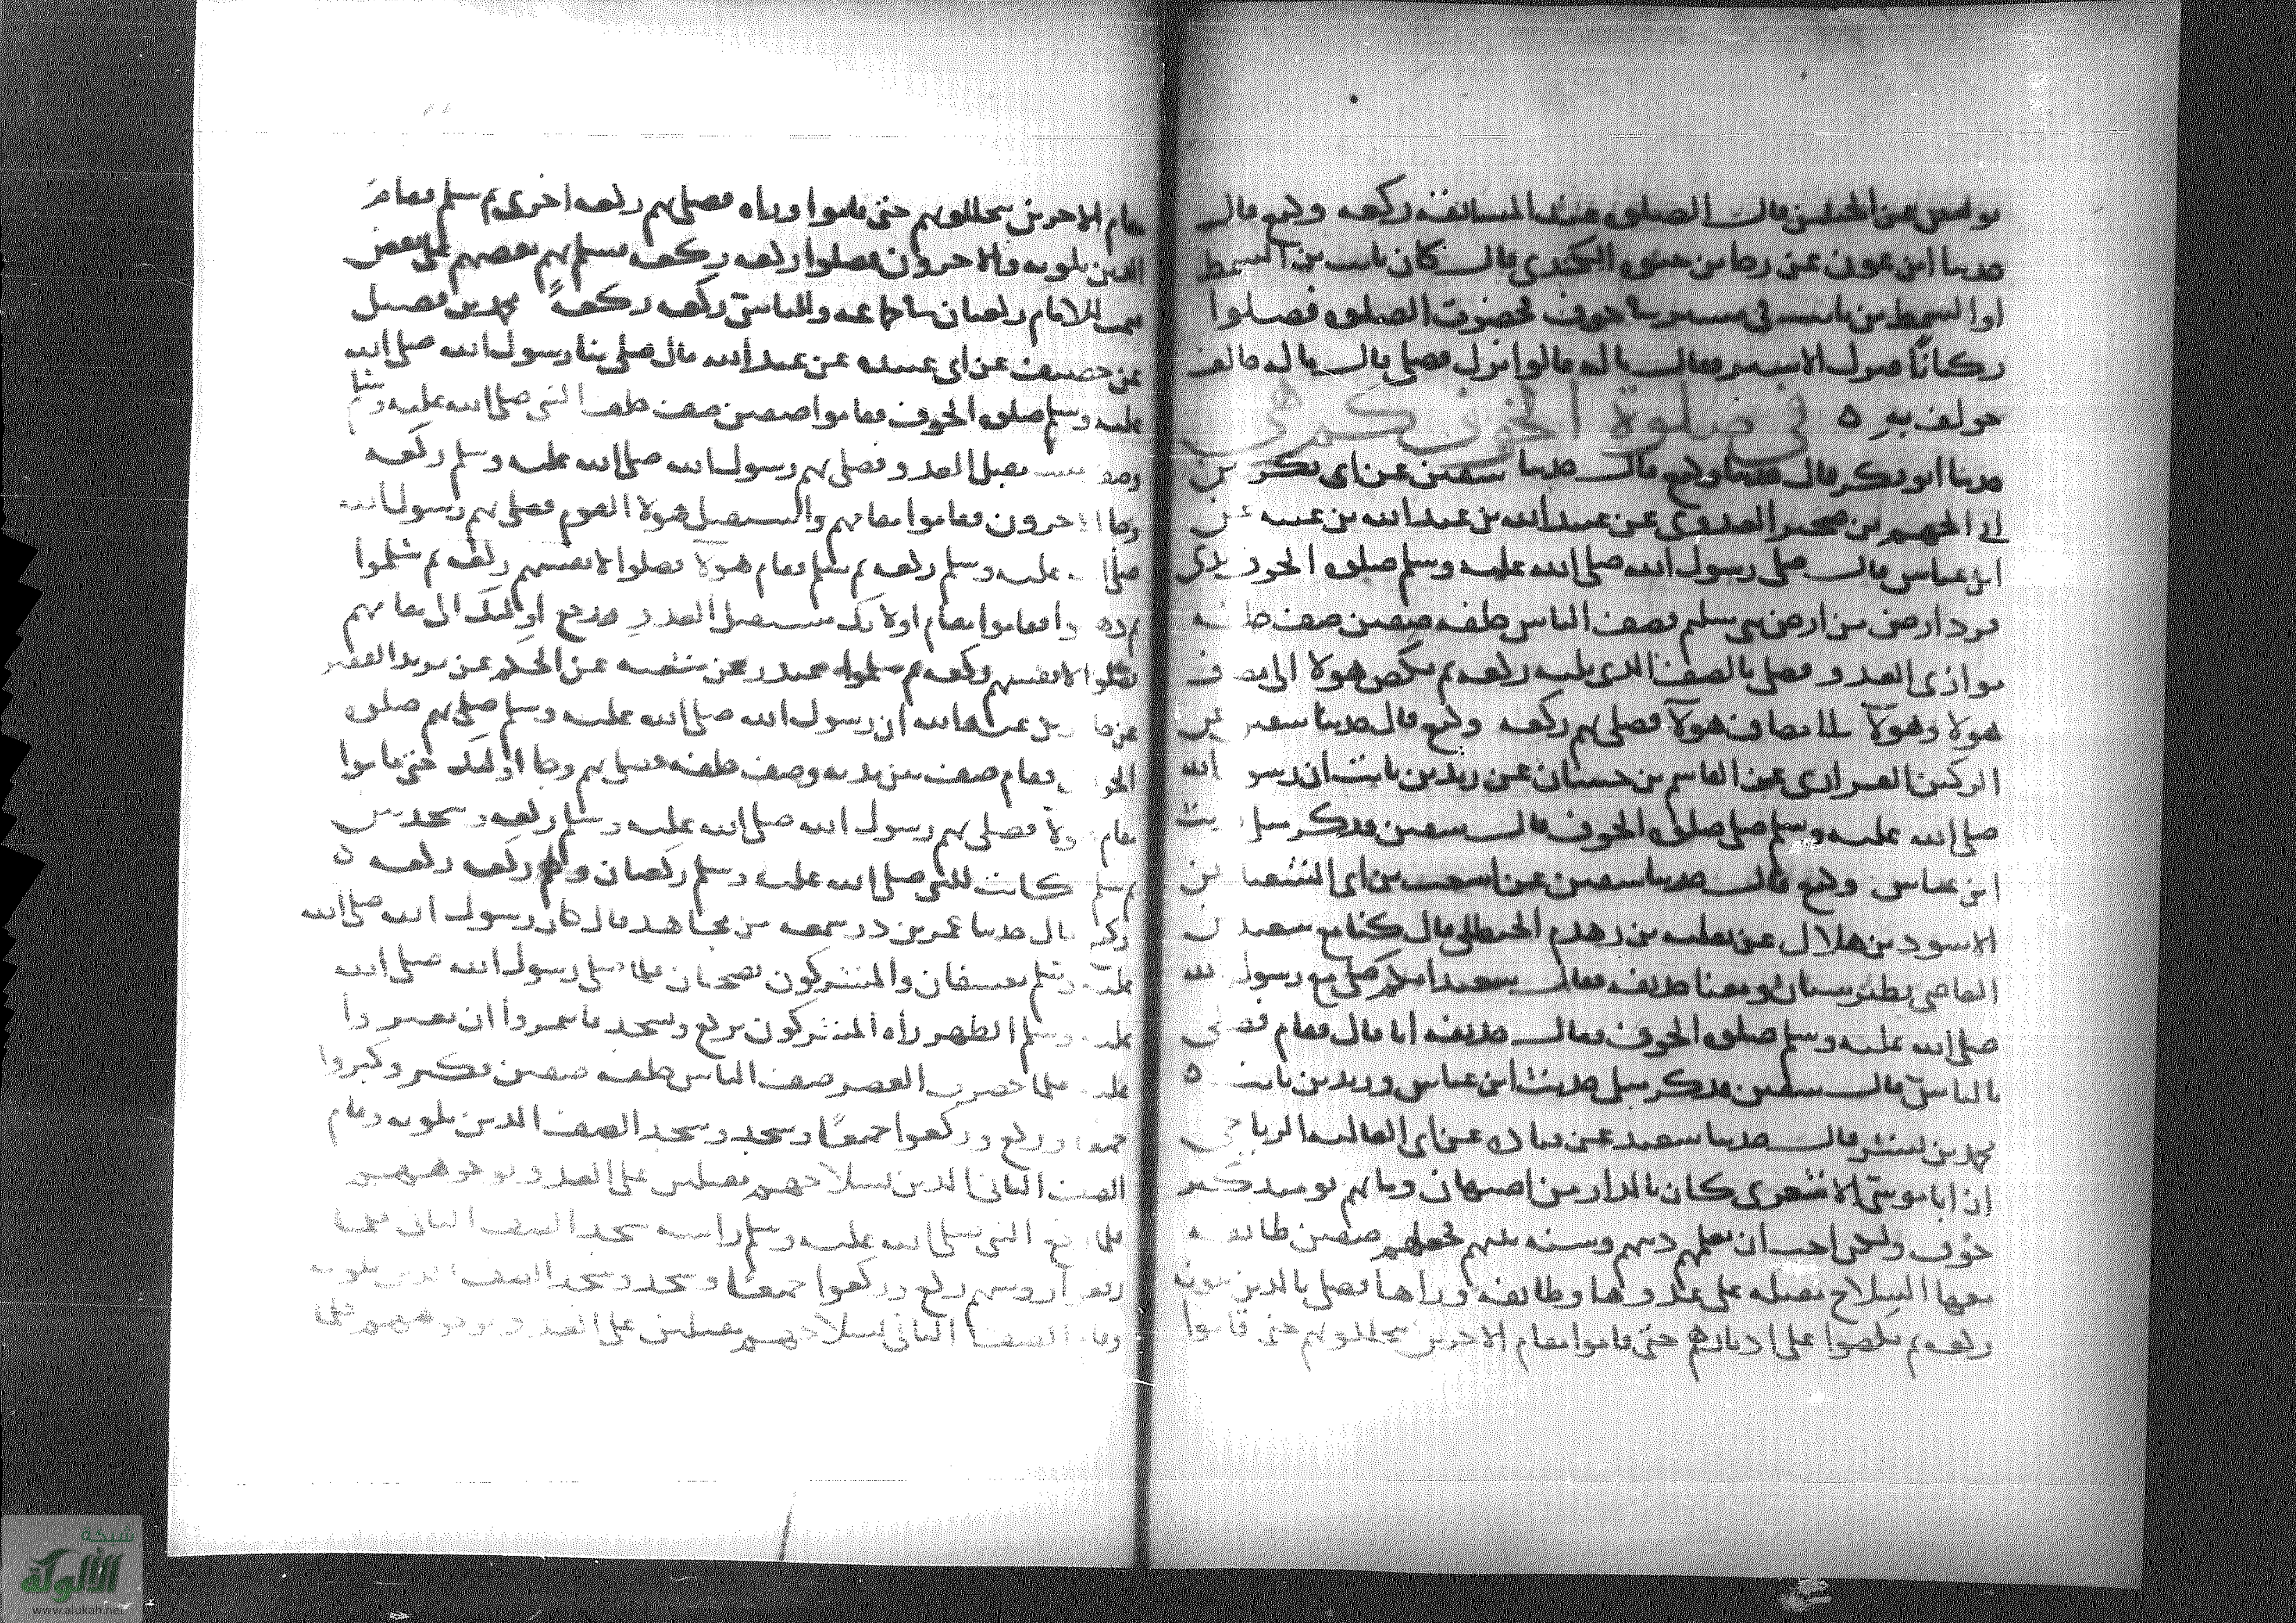 يونس عن الحسن قال الصلوة عند المسايفة ركعة وكيع قال
حدثنا ابن عون عن رجا بن حيوة الكندي قال كان ثابت بن السمط
او السمط بن ثابت في مسير في خوف فحضرت الصلوة فصلوا
ركبانًا فنزل الاشتر فقال ما له قالوا نزل فصلى قال ما له خالف
خولف به ٥ في صلوة الخوف كم هي
حدثنا ابو بكر قال حدثنا وكيع قال حدثنا سفين عن ابي بكر بن
ابي الجهم بن صخير العدوي عن عبيد الله بن عبد الله بن عتبة عن
ابن عباس قال صلى رسول الله صلى الله عليه وسلم صلوة الخوف بذي
قرد ارض من ارض بني سليم فصف الناس خلفه صفين صف خلفه
موازي العدو فصلى بالصف الذي يليه ركعة ثم نكص هولا الى مصاف
هولا وهولا الى مصاف هولا فصلى بهم ركعة وكيع قال حدثنا سفين عن
الركين الفزاري عن القاسم بن حسان عن زيد بن ثابت ان رسول الله
صلى الله عليه وسلم صلى صلوة الخوف قال سفين فذكر مثل حديث
ابن عباس وكيع قال حدثنا سفين عن اشعث بن ابي الشعثا عن
الاسود بن هلال عن ثعلبة بن زهدم الحنظلي قال كنا مع سعيد بن
العاصي بطبرستان ومعنا حذيفة فقال سعيد ايكم صلى مع رسول الله
صلى الله عليه وسلم صلوة الخوف فقال حذيفة انا قال فقام فصلى
بالناس قال سفين فذكر مثل حديث ابن عباس وزيد بن ثابت ٥
محمد بن بشر قال حدثنا سعيد عن قتادة عن ابي العالية الرياحي
ان ابا موسى الاشعري كان بالدار من اصبهان وما بهم يوميذ كبير
خوف ولكن احب ان يعلمهم دينهم وسنة نبيهم فجعلهم صفين طائفة
معها السلاح مقبلة على عدوها وطائفة وراها فصلى بالذين يلونه
ركعة ثم نكصوا على ادبارهم حتى قاموا مقام الاخرين يتخللونهم حتى قاموا
مقام الاخرين يتخللونهم حتى قاموا وراه فصلى بهم ركعة اخرى ثم سلم فقام
الذين يلونه والاخرون فصلوا ركعة ركعة فسلم بهم بعضهم على بعض
فتمت للامام ركعتان في جماعة وللناس ركعة ركعة محمد بن فضيل
عن خصيف عن ابي عبيدة عن عبد الله قال صلى بنا رسول الله صلى الله
عليه وسلم صلوة الخوف فقاموا صفين صف خلف النبي صلى الله عليه وسلم
وصف مستقبل العدو فصلى بهم رسول الله صلى الله عليه وسلم ركعة
وجا الاخرون فقاموا مقامهم واستقبل هولا العدو فصلى بهم رسول الله
صلى الله عليه وسلم ركعة ثم سلم فقام هولا فصلوا لانفسهم ركعة ثم سلموا
ثم ذهبوا فقاموا مقام اولايك مستقبلي العدو ورجع اوليك الى مقامهم
فصلوا لانفسهم ركعة ثم سلموا غندر عن شعبة عن الحكم عن يزيد الفقير
عن جابر بن عبد الله ان رسول الله صلى الله عليه وسلم صلى بهم صلوة
الخوف فقام صف بين يديه وصف خلفه فصلى بهم وجا اوليك حتى قاموا
مقام هولا فصلى بهم رسول الله صلى الله عليه وسلم ركعة وسجدتين
ثم سلم كانت للنبي صلى الله عليه وسلم ركعتان ولهم ركعة ركعة ٥
وكيع قال حدثنا عمر بن ذر سمعه من مجاهد قال كان رسول الله صلى الله
عليه وسلم بعسفان والمشركون بضجنان فلما صلى رسول الله صلى الله
عليه وسلم الظهر راه المشركون يركع ويسجد فاتمروا ان يغيروا
عليه فلما حضرت العصر صف الناس خلفه صفين فكبر وكبروا
جميعا وركع وركعوا جميعًا وسجد وسجد الصف الذين يلونه وقام
الصف الثاني الذين بسلاحهم مقبلين على العدو بوجوههم
فلما رفع النبي صلى الله عليه وسلم راسه سجد الصف الثاني فلما
رفعوا روسهم ركع وركعوا جميعًا وسجد وسجد الصف الذين يلونه
وقام الصف الثاني بسلاحهم مقبلين على العدو بوجوههم فلما
شبكة
الألوكة
www.alukah.net